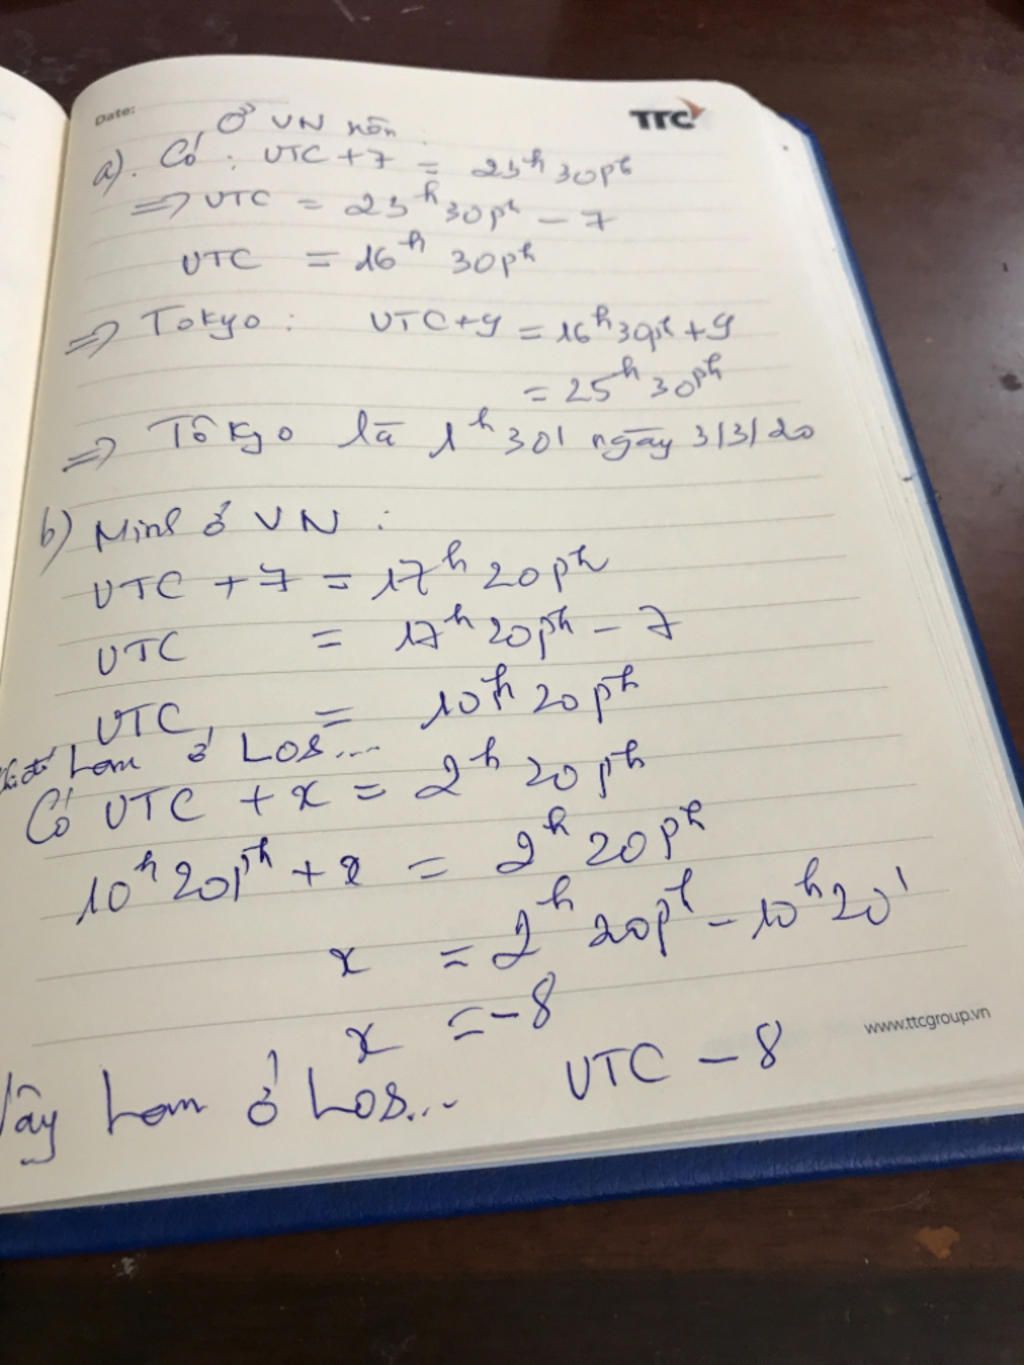 Date:
TTC
Ở VN nên
a). Có: UTC + 7 = 23h 30ph
=> UTC = 23h 30ph - 7
UTC = 16h 30ph
=> Tokyo: UTC + 9 = 16h 30ph + 9
= 25h 30ph
=> Tôkyo là 1h 30' ngày 3/3/20
b) Minh ở VN :
UTC + 7 = 17h 20ph
UTC = 17h 20ph - 7
UTC = 10h 20ph
Lam ở Los...
Có UTC + x = 2h 20ph
10h 20ph + x = 2h 20ph
x = 2h 20ph - 10h 20'
x = -8
Vậy Lam ở Los... UTC - 8
www.ttcgroup.vn